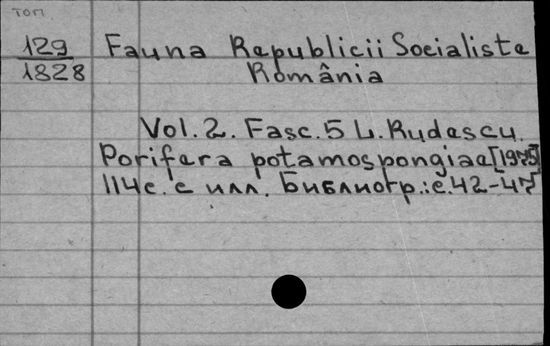 том
129 Fauna Republicii Socialiste
1828 România
Vol.2. Fasc.5 L. Rudescu.
Porifera potamospongiae [1975]
114с. с илл. Библиогр.: с.42-47